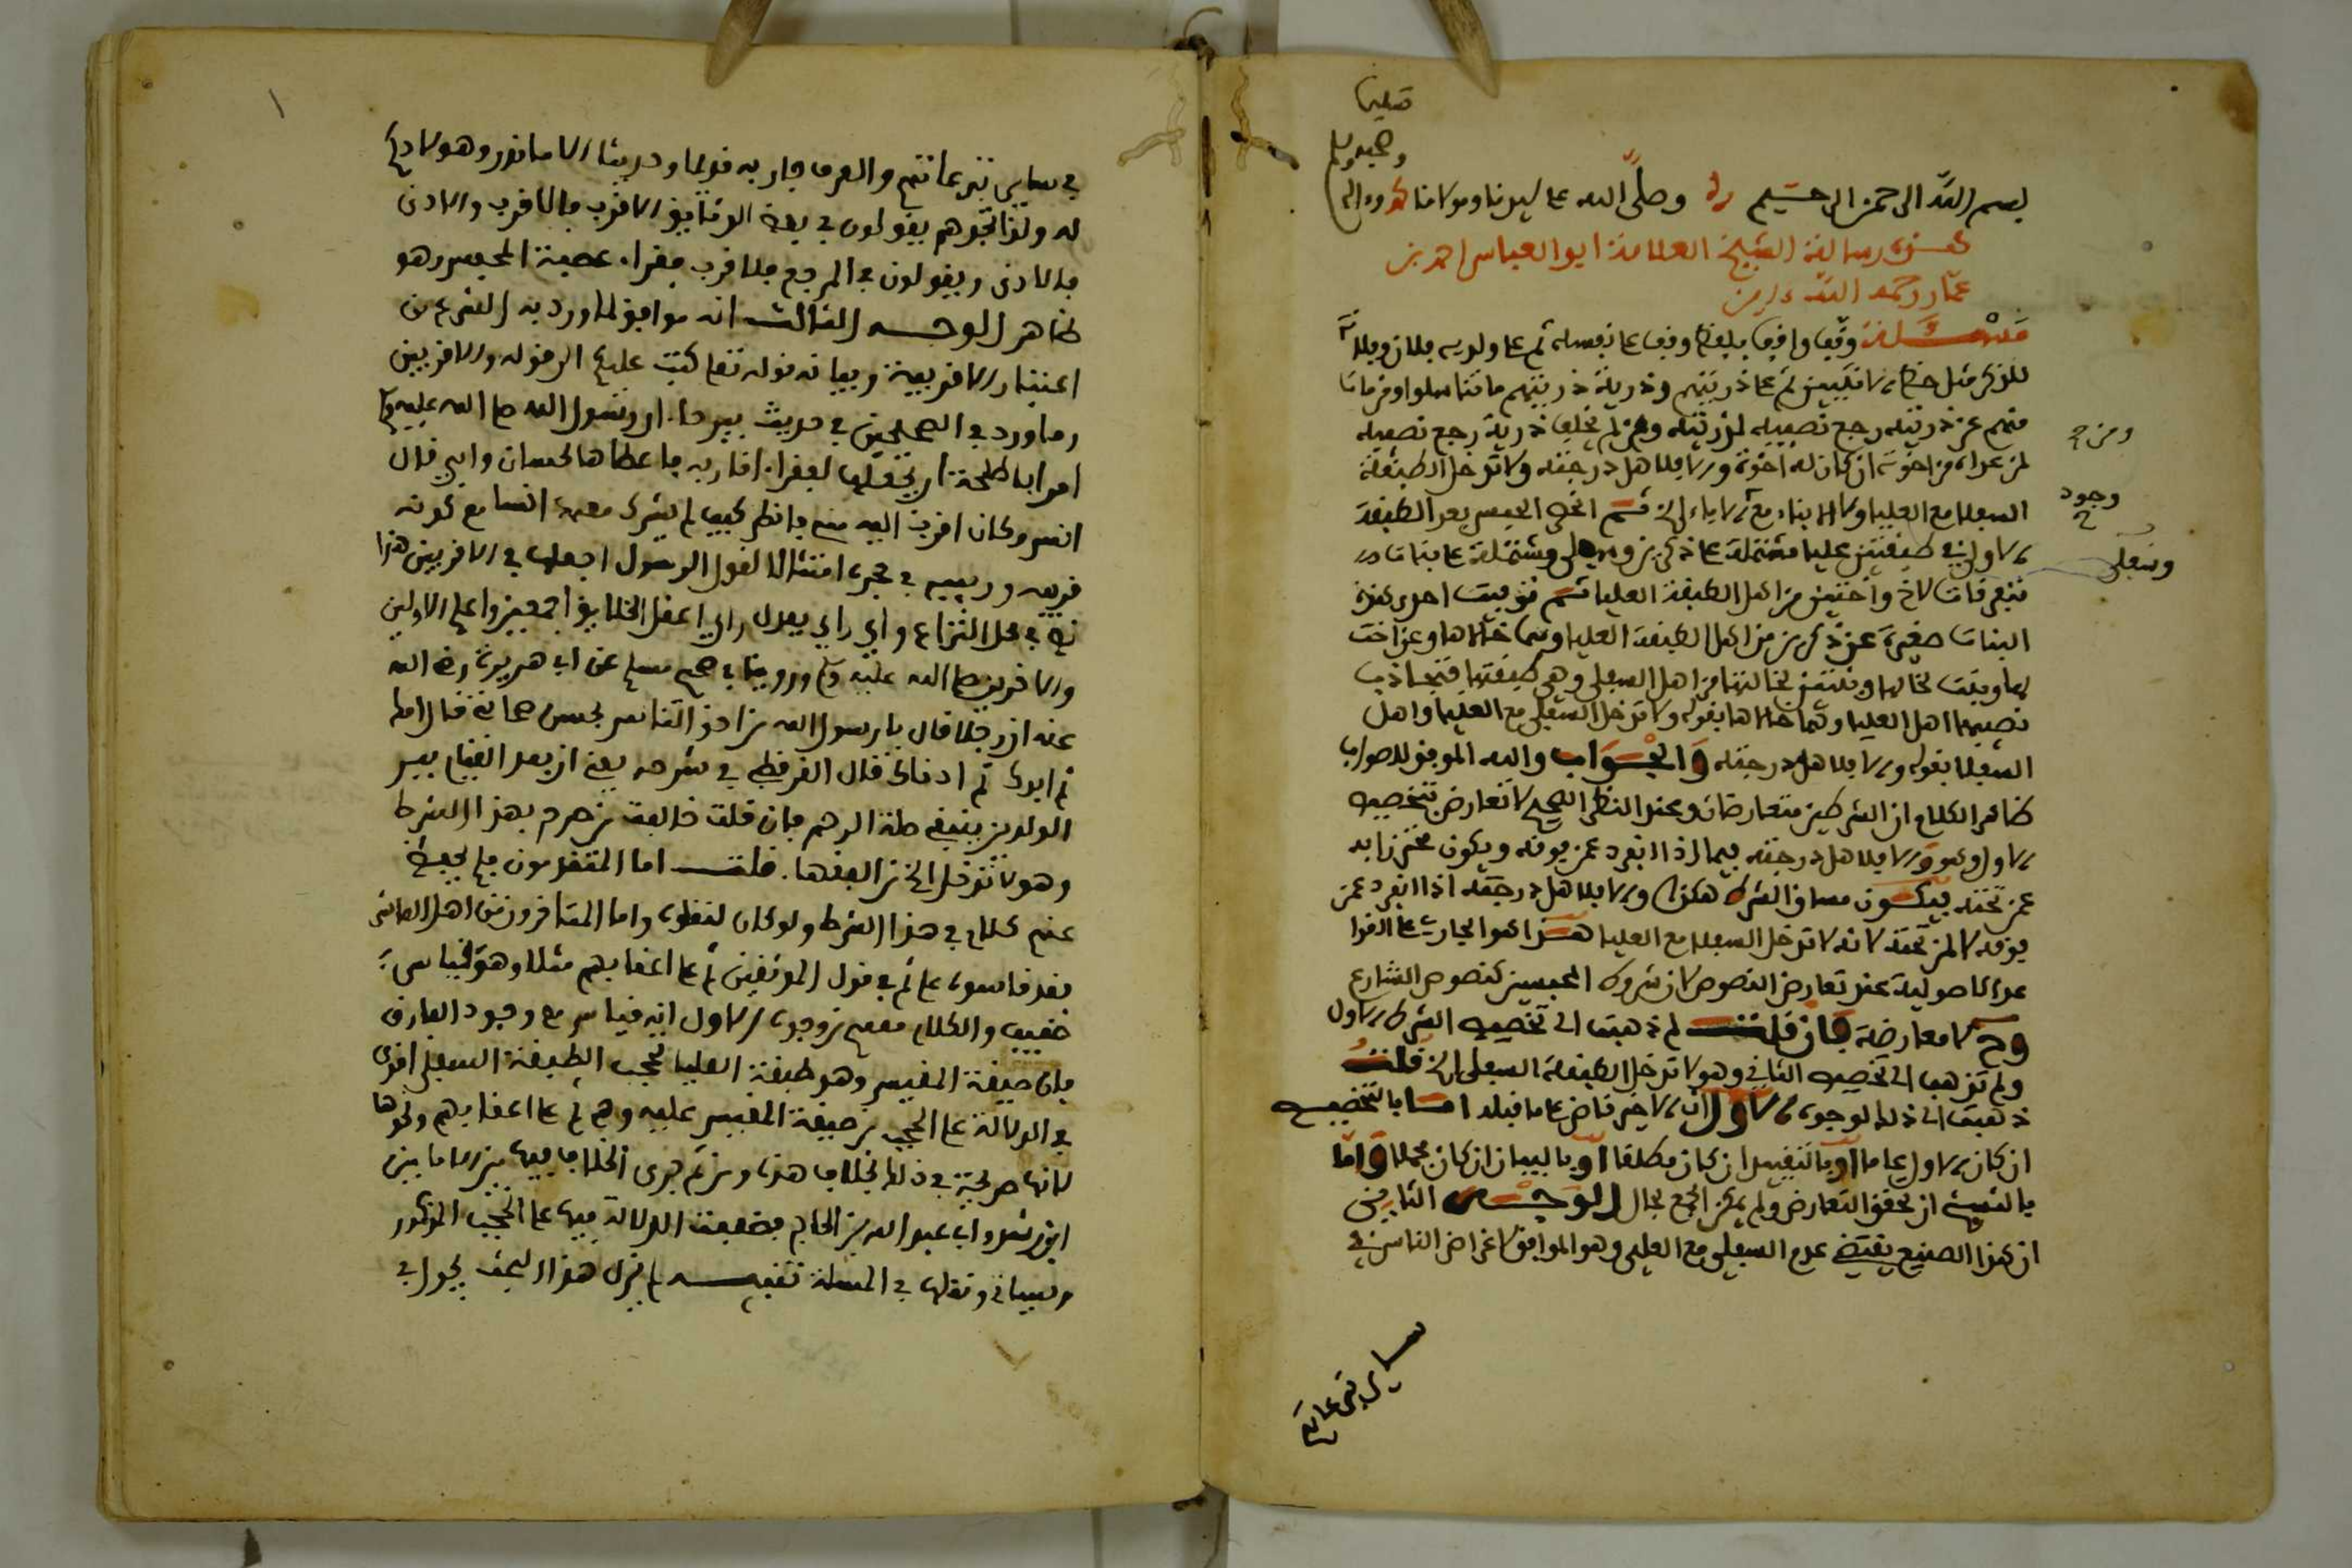 بسم الله الرحمن الرحيم وصلى الله على سيدنا ومولانا محمد وآله
وصحبه وسلم
تسليما
هذه رسالة الشيخ العلامة ابو العباس احمد بن
عمار رحمه الله
مسئلة وقف واقف بلفظ وقف على نفسه ثم على ولديه فلان وفلان
للذكر مثل حظ الانثيين ثم على ذريتهم وذرية ذريتهم ما تناسلوا ومن مات
منهم عن ذرية رجع نصيبه لذريته ومن لم يخلف ذرية رجع نصيبه
لمن عداه من اخوته ان كان له اخوة والا فلاهل درجته ولا تدخل الطبقة
السفلى مع العليا ولا الابناء مع الاباء الخ ثم انحصر الحبس بعد الطبقة
الاولى في طبقتين عليا مشتملة على ذكرين وسفلى ومشتملة على بنات
متفرقات لاخ واختين من اهل الطبقة العليا ثم توفيت احدى هذه
البنات صغيرة عن ذكرين من اهل الطبقة العليا وهما خالاها وعن اخت
لها وبنت خالها وبنتين لخالتها من اهل السفلى وهي طبقتها فتجاذب
نصيبها اهل العليا وهما خالاها بقوله ولا تدخل السفلى مع العليا واهل
السفلى بقوله والا فلاهل درجته والجواب والله الموفق للصواب
ظاهر الكلام ان الشرطين متعارضان وعند النظر الصحيح لا تعارض لتخصيص
الاول وهو والا فلاهل درجته بما اذا انفرد عمن فوقه ويكون محترزا به
عمن تحته فيكون مساق الشرط هكذا والا فلاهل درجته اذا انفرد عمن
فوقه لا لمن تحته لانه لا تدخل السفلى مع العليا هذا هو الجاري على القوا
عد الاصولية عند تعارض النصوص لان شروط المحبسين كنصوص الشارع
وح لا معارضة فان قلت لم ذهبت الى تخصيص الشرط الاول
ولم تذهب الى تخصيص الثاني وهو لا تدخل الطبقة السفلى الخ قلت
ذهبت الى ذلك لوجوه الاول ان الاخير قاض على ما قبله اما بالتخصيص
ان كان الاول عاما او بالتقييد ان كان مطلقا او بالبيان ان كان مجملا واما
بالنسخ ان تحقق التعارض ولم يمكن الجمع بحال الوجه الثاني
ان هذا الصنيع يقتضي عدم السفلى مع العليا وهو الموافق لاغراض الناس في
ومن ح
وجود
وسفلى
ساير تبرعاتهم
في ساير تبرعاتهم والعرف جار به قديما وحديثا الا ما ندر وهو لا حكم
له ولذا تجدهم يقولون في بعض الوثايق الاقرب فالاقرب والادنى
فالادنى ويقولون في المرجع فلاقرب فقراء عصبة المحبس وهو
ظاهر الوجه الثالث انه موافق لما ورد به الشرع من
اعتبار الاقربية وبيانه قوله تعالى كتب عليكم الى قوله والاقربين
وما ورد في الصحيحين في حديث بيرحاء ان رسول الله صلى الله عليه وسلم
امر ابا طلحة ان يجعلها لفقراء اقاربه فاعطاها لحسان وابي قال
انس وكان اقرب اليه مني فانظر كيف لم يشرك معهما انسا مع كونه
قريبه وربيبه في حجره امتثالا لقول الرسول اجعلها في الاقربين هذا
نص في محل النزاع واي راي يعدل راي اعقل الخلايق اجمعين واعلم الاولين
والاخرين صلى الله عليه وسلم وروينا في صحيح مسلم عن ابي هريرة رضي الله
عنه ان رجلا قال يا رسول الله من احق الناس بحسن صحابتي قال امك
ثم ابوك ثم ادناك قال القرطبي في شرحه يعني ان بعد القيام ببر
الوالدين ينبغي صلة الرحم فان قلت خالفت من صرح بهذا الشرط
وهو لا تدخل الخ من الفقهاء قلت اما المتقدمون فلم يحفظ
عنهم كلام في هذا الشرط ولو كان لنقلوه واما المتاخرون من اهل المائة
فقد قاسوه على ثم في قول الموثقين ثم على اعقابهم مثلا وهو قياس
ضعيف والكلام معهم من وجوه الاول انه قياس مع وجود الفارق
فان صيغة المقيس وهو طبقة العليا تحجب الطبقة السفلى اقوى
في الدلالة على الحجب من صيغة المقيس عليه وهو ثم على اعقابهم ونحوها
لانها صريحة في ذلك بخلاف هذه ومن ثم جرى الخلاف فيها بين الامامين
ابن رشد وابي عبد الله بن الحاج فضعفت الدلالة فيها على الحجب المذكور
وسياتي ونقلها في المسئلة تنبيه لم يزل هذا البحث يجول في